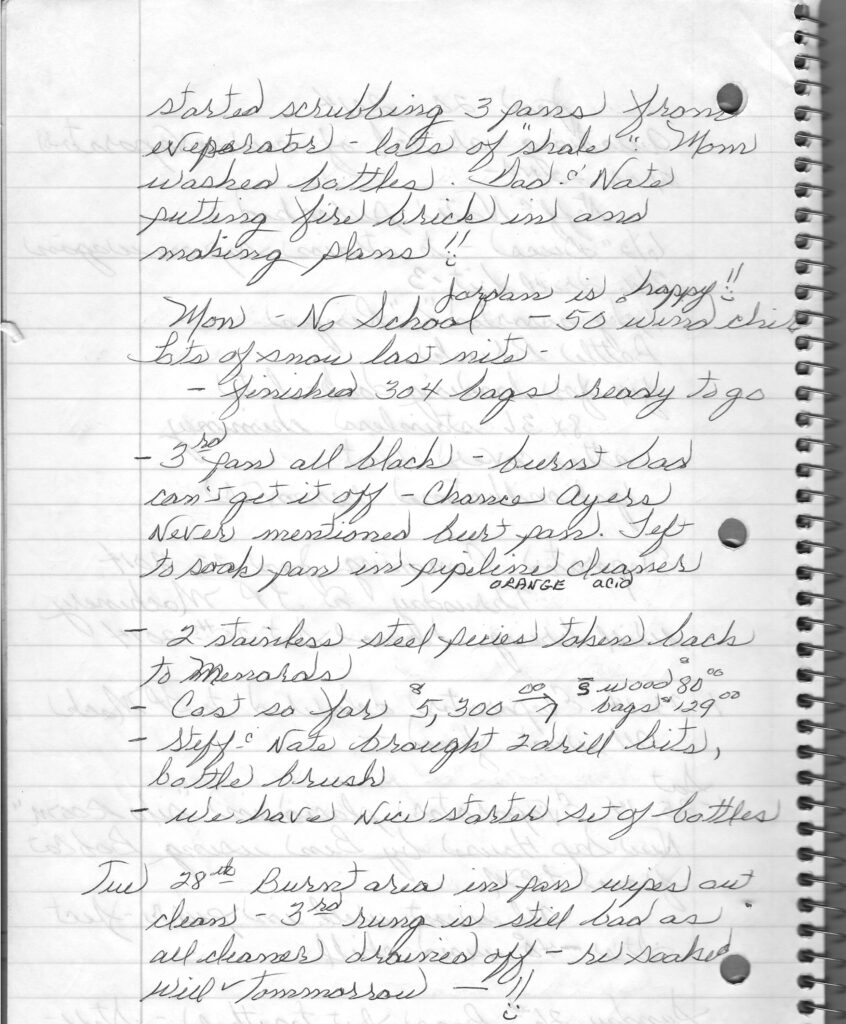 started scrubbing 3 pans from
eveperator - lots of "shale" Mom
washed bottles. Dad & Nate
putting fire brick in and
making plans!!
Jordan is happy!!
Mon - No School - 50 wind chill
Lots of snow last nite -
- finished 304 bags ready to go
- 3rd pan all black - burnt bad
can't get it off - Chance Ayers
Never mentioned burt pan. Left
to soak pan in pipeline cleaner
ORANGE acid
- 2 stainless steel pecies taken back
to Menards
- Cost so far $5,300.00 → 5 wood $80.00
bags $129.00
- Steff & Nate brought 2 drill bits,
bottle brush
- we have Nice starter set of bottles
Tue 28th Burnt area in pan wipes out
clean - 3rd rung is still bad as
all cleaner drained off - re soaked
will ✓ tommorrow - !!